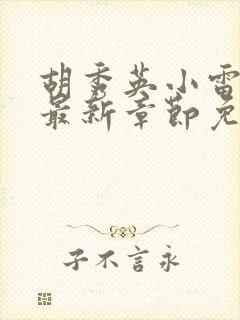 胡秀英小雷
最新章节免
子不言永